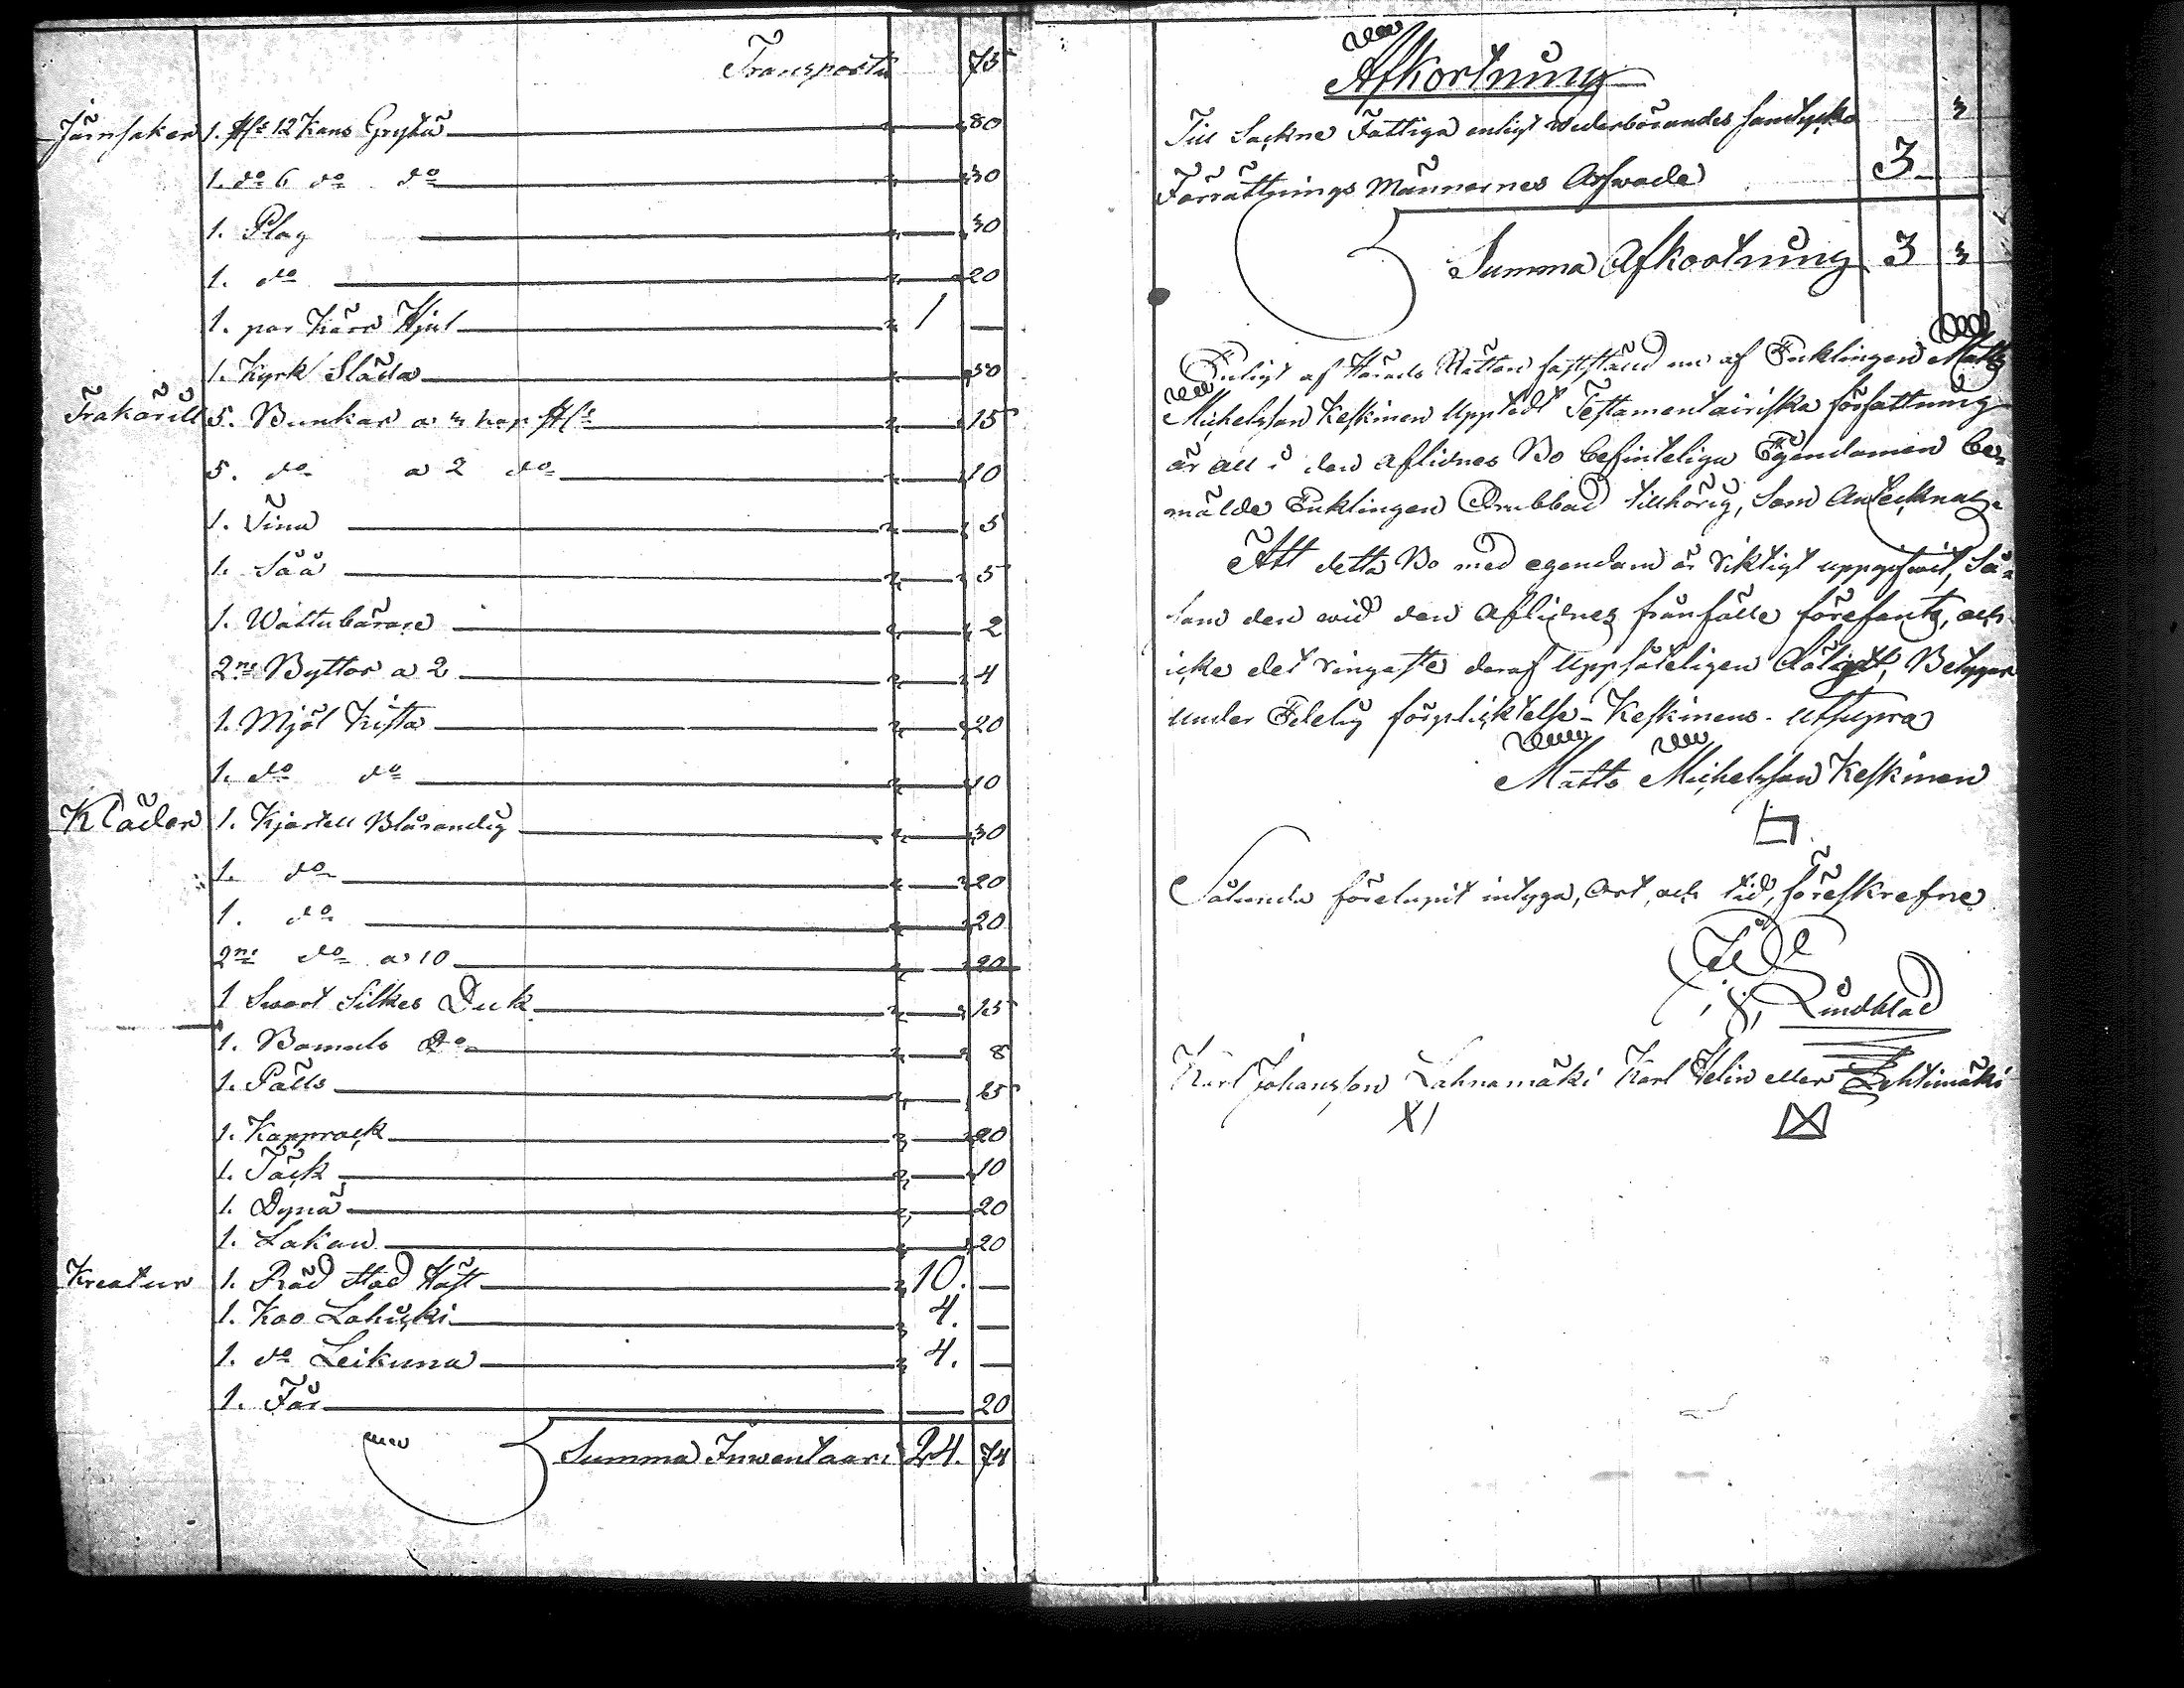 Transport 75
Järnsaker 1. st 12 Kans Gryta 80
1. do 6 do do 30
1. Plog 30
1. do 20
1. par Kärr Hjul 1 —
1. Kyrk Släda 50
Träkärill 5. Bunkar a 3 kop st 15
5. do a 2 do 10
1. Tina 5
1. Såå 5
1. Wattubärare 2
2ne Byttor a 2 4
1. Mjöl Kista 20
1. do do 10
Kläder 1. Kjortell Blårandig 30
1. do 20
1. do 20
2ne do a 10 20
1 Swart Silkes Duk 15
1. Bomuls Do 8
1. Pälls 25
1. Kapprock 20
1. Täck 10
1. Dyna 20
1. Lakan 20
Kreatur 1. Röd Stod Häst 10. —
1. Koo Lahicki 4. —
1. do Leikuna 4. —
1. Får 20
Summa Inwentaari 24. 74
Afkortning
Till Sockne Fattiga enligt wederbörandes samtycke 3
Förrättnings Männernes Arfwode 3 —
Summa Afkortning 3 3
Enligt af Härads Rätten faststäld en af Enklingen Matts
Michelsson Keskinen Uppteдt Testamentairiska författning
är all i den aflidnes Bo befinteliga Egendomen be-
mälde Enklingen Orubbad tillhörig, som Antecknas.
Att detta Bo med egendom är riktigt uppgifwit, Så-
som den wid den Aflidnes frånfälle förefants, och
icke det ringaste deraf Uppsåteligen Dåligdt, Betygar
under Edelig förpliktelse – Keskinens. utsupra
Matts Michelsson Keskinen
Sålunda förelupit intyga, Ort, och tid, föreskrefne
Lindblad
Karl Johansson Lahnamäki Karl Helin eller Lehtimäki